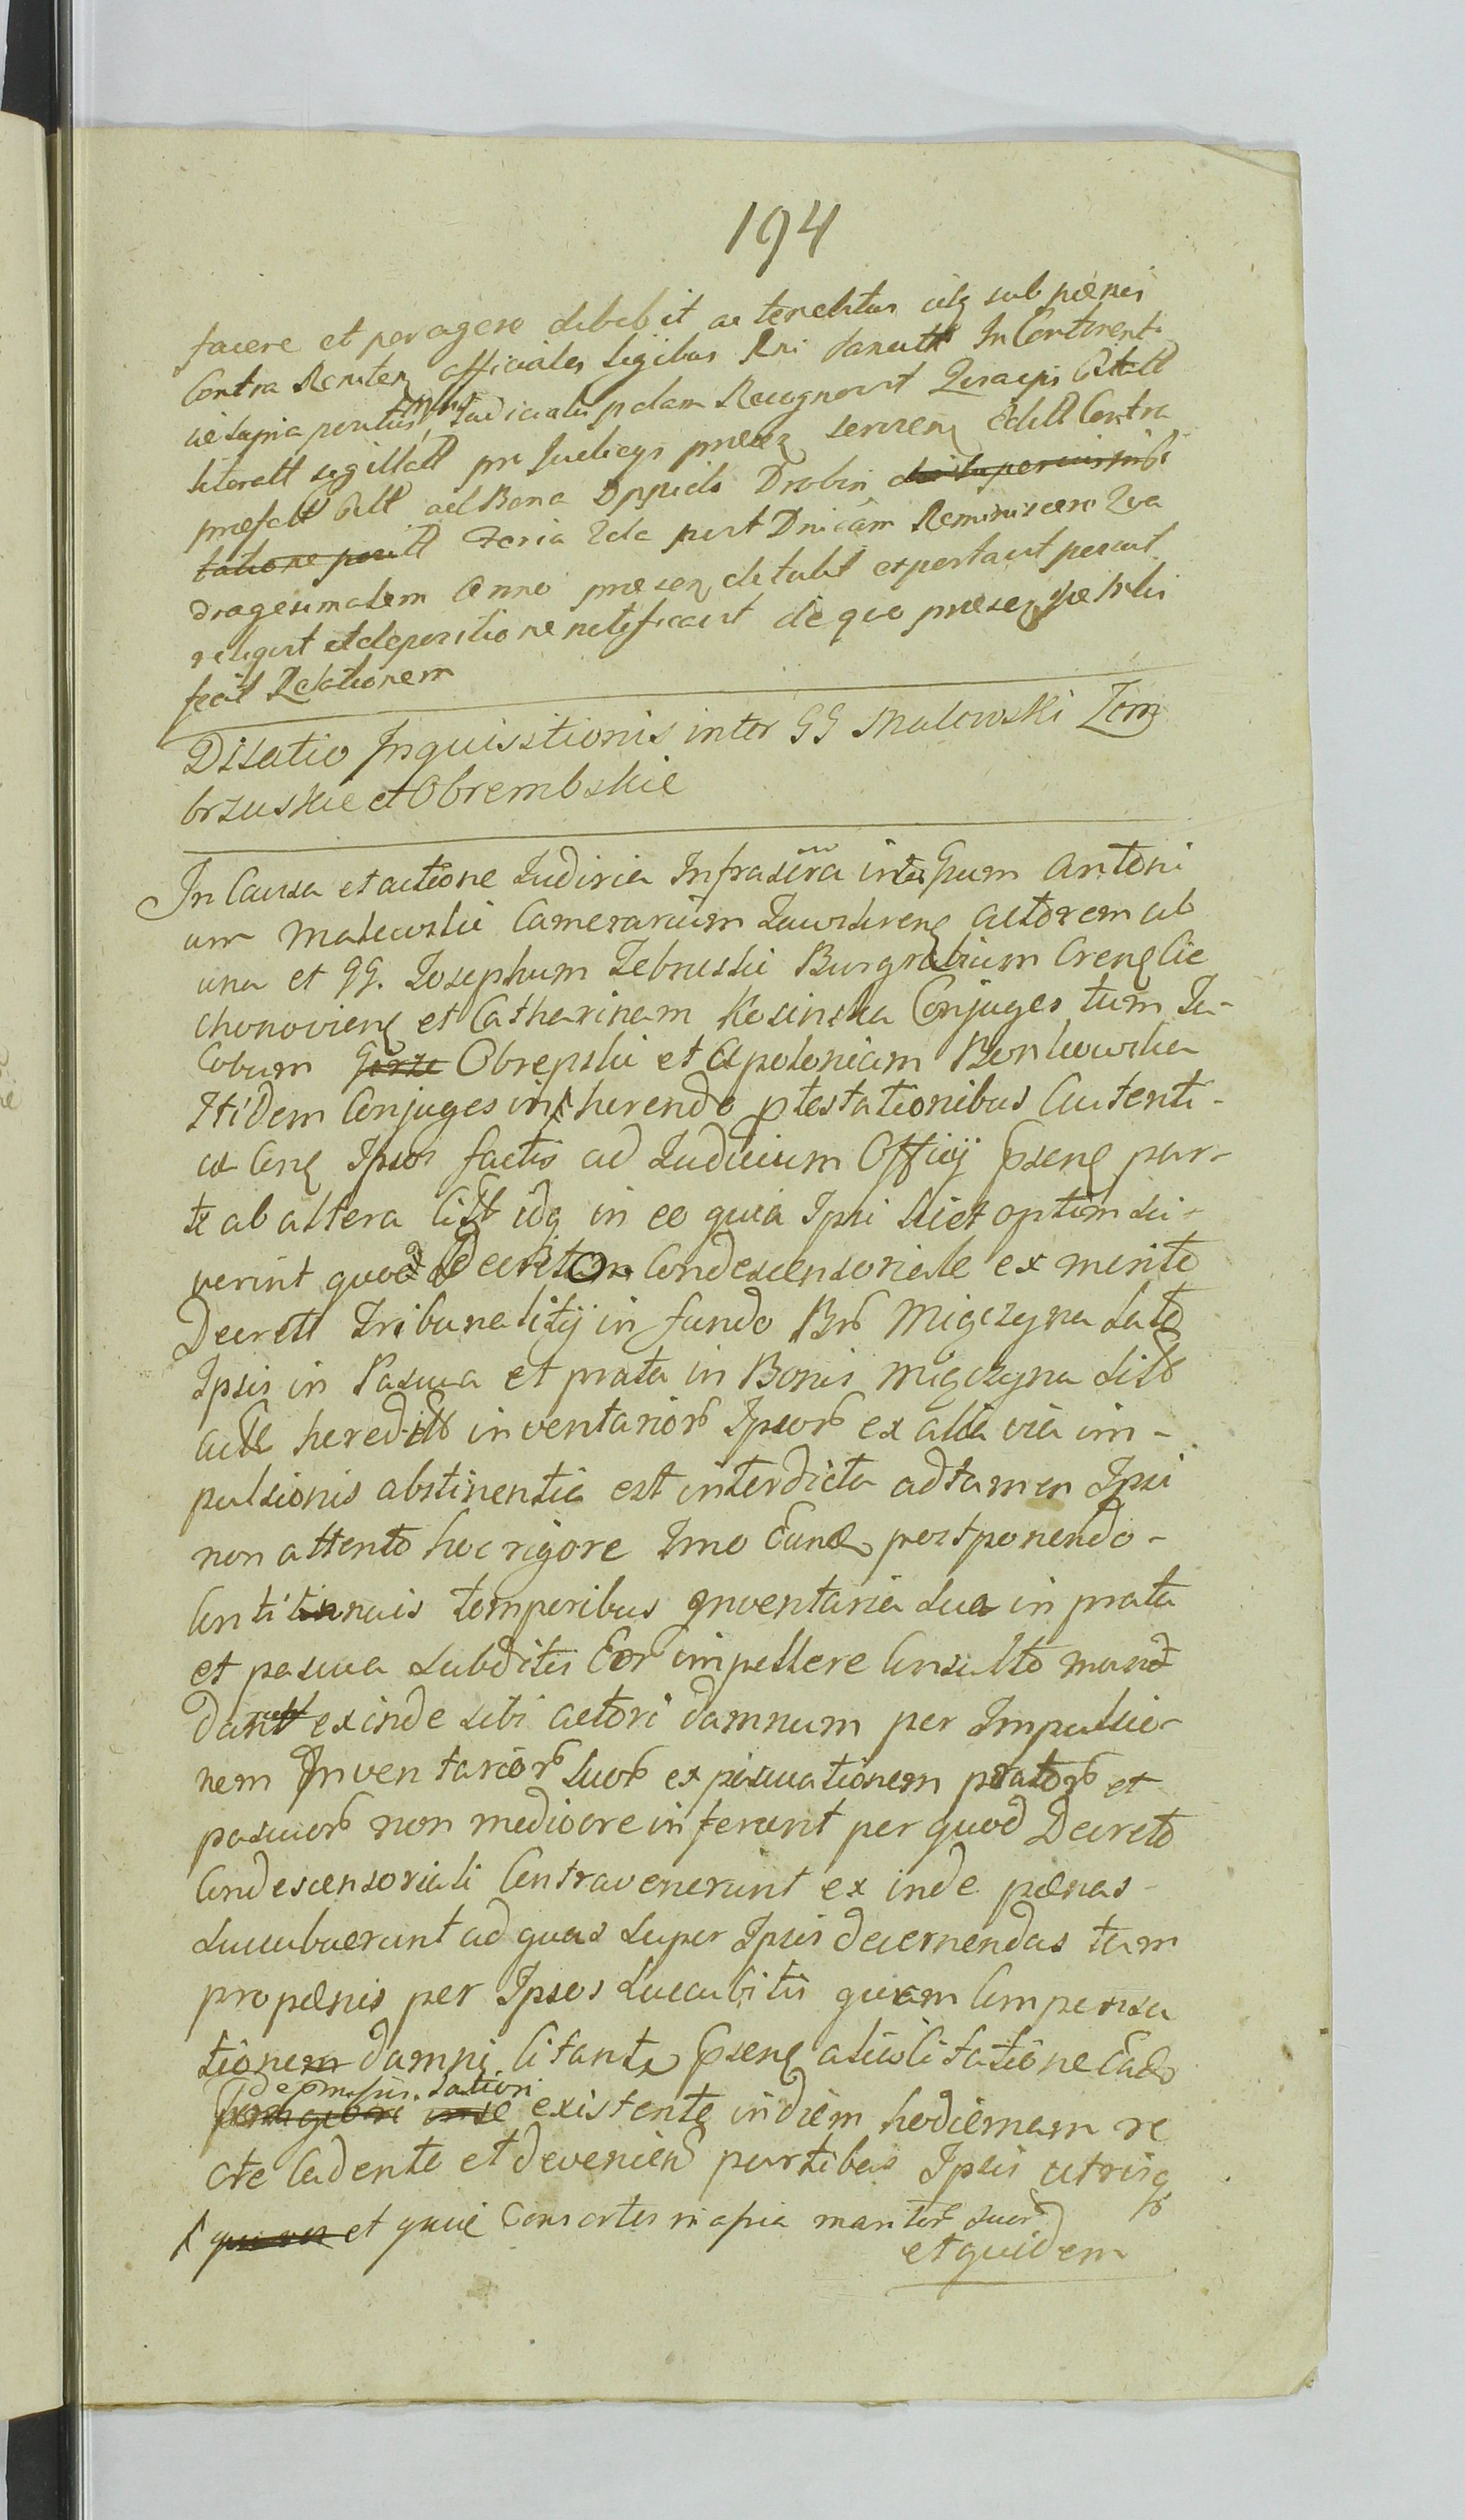 194
facere et peragere debebit ac tenebitur idq sub pœnis
Contra Reniten officiales legibus Rni sancitt In Continenti
literatt sigillatt pr Judicys præsen servien
præfatt ad Bona Oppido Drobin
Feria 2da post Dnicam Reminiscere Qua
dragesimalem Anno præsen detulit exportavit posuit
religit et depositione notificavit de quo præsen
fecit Relationem
Dilatio Inquisitionis inter GG Malewski Zem
brzuskie et Obrembskie
In Causa et actione Judicia Infrascra inter Gsum Antoni
um Malewski Camerarium Zawskrens actorem ab
una et GG. Josephum Zebruski Burgrabium Crens Cie
chonoviens et Catharinam Kosinska Conjuges tum Ja-
cobum Gorze Obrepski et Apoloniam Bonkowska
Itidem Conjuges inherendo ptestationibus Autenti-
ce Ctra Ipsos factis ad Judicium Officij psens par-
te ab altera Citt idq in eo quia Ipsi licet optim sci-
verint quod Decreto Condescensoriale ex merito
Decrett Tribunalitij in fundo Brb Migczyna lato
Ipsis in Pascua et prata in Bonis Migczyna Sitt
actt hereditt inventariorb Ipsorb ex alia via im-
pulsionis abstinentia est interdicta adtamen Ipsi
non attento hoc rigore Imo Eund postponendo-
Continuis temporibus Inventaria sua in prata
et pascua subditis Eorb impellere Consulto mand
dant exinde sibi actori damnum per Impulsio-
nem Inventariorb suorb expascuationem pratorb et
pascuorb non mediocre inferunt per quod Decreto
Condescensoriali Contravenerunt ex inde pœnas-
succubuerunt ad quas super Ipsis decernendas tam
propœnis per Ipsos succubitis quam Compensa
tionem damni Citante psens aliis Citatione Ead
existente in diem hodiernam re
cte Cadente et devenien partibus Ipsis utrisq
et quie Consortes in assia maritorb suorb
et quidem